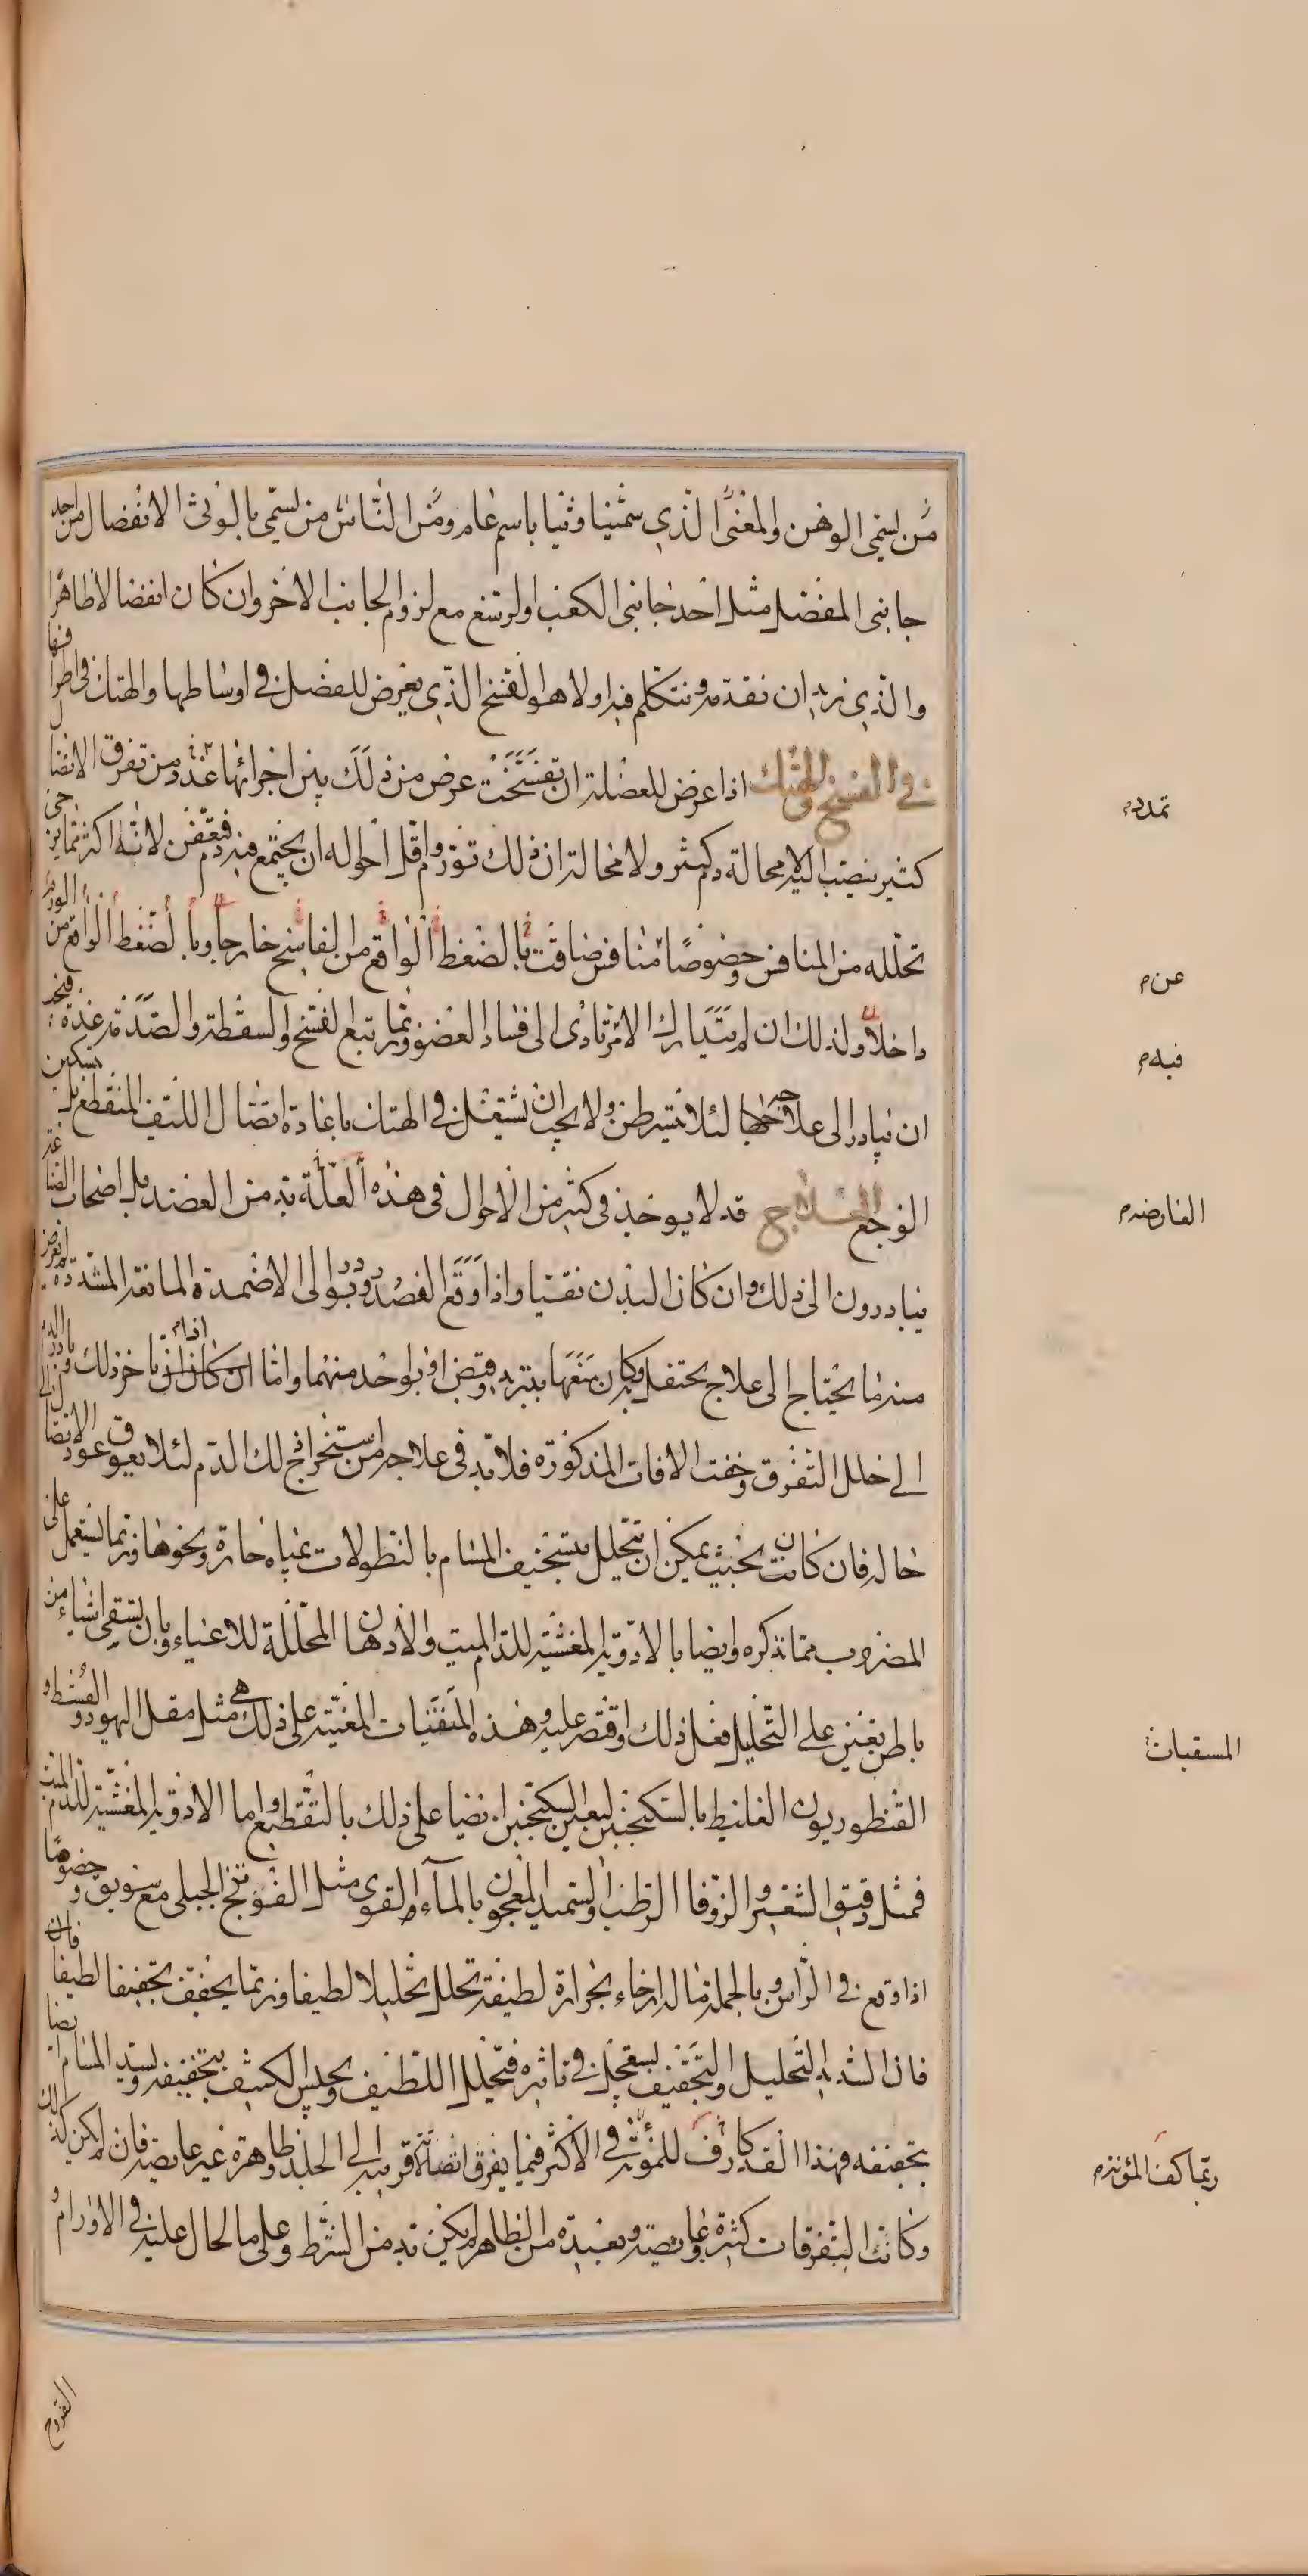 من يسمى الوهن والمعنى الذي سميناه وثيا باسم عام ومن الناس من يسمي بالوثى الانفصال من احد
جانبي المفصل مثل احد جانبي الكعب او الرسغ مع لزوم الجانب الاخر وان كان انفصالا ظاهرا
والذي نريد ان نقدمه ونتكلم فيه اولا هو الفسخ الذي يعرض للعضل في اوساطها والهتك في اطرافها
في الفسخ والهتك اذا عرض للعضلة ان تفسخت عرض من ذلك بين اجزائها غدد من تفرق الاتصال
كثير ينصب اليه لا محالة دم كثير ولا محالة ان ذلك تورم واقل احواله ان يجتمع فيه دم فيعفن لانه اكثر مما يزجى
تحلله من المنافس وخصوصا منافس ضاقت بالضغط الواقع من الفاسخ خارجا وبالضغط الواقع من الورم
داخلا ولذلك ان لم يتدارك الامر تادى الى فساد العضو وربما تبع الفسخ والسقطة والصدمة غدة فيجب
ان يبادر الى علاجها لئلا تتسرطن ولا يجب ان يشتغل في الهتك باعادة اتصال الليف المنقطع بل بتسكين
الوجع العلاج قد لا يوخذ في كثير من الاحوال في هذه العلة بد من الفصد بل اصحاب الصناعة
يبادرون الى ذلك وان كان البدن نقيا واذا وقع الفصد ودربوا الى الاضمدة المانعة المشددة لم يعرض
منه ما يحتاج الى علاج يحتفل به وكان منعها بتبريد وقبض او بواحد منهما واما ان كان اذا تاخر ذلك وبادر الدم
الى خلل التفرق وخفت الافات المذكورة فلا بد في علاجه من استخراج ذلك الدم لئلا يعوق عود الاتصال الى
حاله فان كانت بحيث يمكن ان تتحلل بتسخيف المسام بالنطولات بمياه حارة ونحوها وربما يستعمل على
المضروب مما نذكره وايضا بالادوية المغشية للدم الميت والادهان المحللة للاعياء وبان يسقى اشياء من
باطن تعين على التحليل فعل ذلك واقتصر عليه وهذه المنقيات المعينة على ذلك هي مثل مقل اليهود والقسط و
القنطوريون الغليظ بالسكنجبين ليعين السكنجبين ايضا على ذلك بالتقطيع واما الادوية المغشية للدم الميت
فمثل دقيق الشعير والزوفا الرطب والسميد المعجون بالماء والقوي مثل الفوتنج الجبلي مع سويق وخصوصا
اذا وقع في الراس وبالجملة ما له ارخاء بحرارة لطيفة تحلل تحليلا لطيفا وربما يجفف تجفيفا لطيفا فان
فان الشديد التحليل والتجفيف يستعجل في تاثيره فتحلل اللطيف ويحبس الكثيف بتجفيفه ويسد المسام ايضا
بتجفيفه فهذا القدر كاف للمؤنة في الاكثر فيما يفرق اتصالاته قريبة الى الجلد ظاهرة غير غايصة فان لم يكن كذلك
وكانت التفرقات كثيرة وغايصة وبعيدة من الظاهر لم يكن بد من الشرط وعلى ما لحال عليه في الاورام و
القروح
تمدد م
عن م
فيه م
العارضة م
المسقيات
ربما كفى المؤنة م